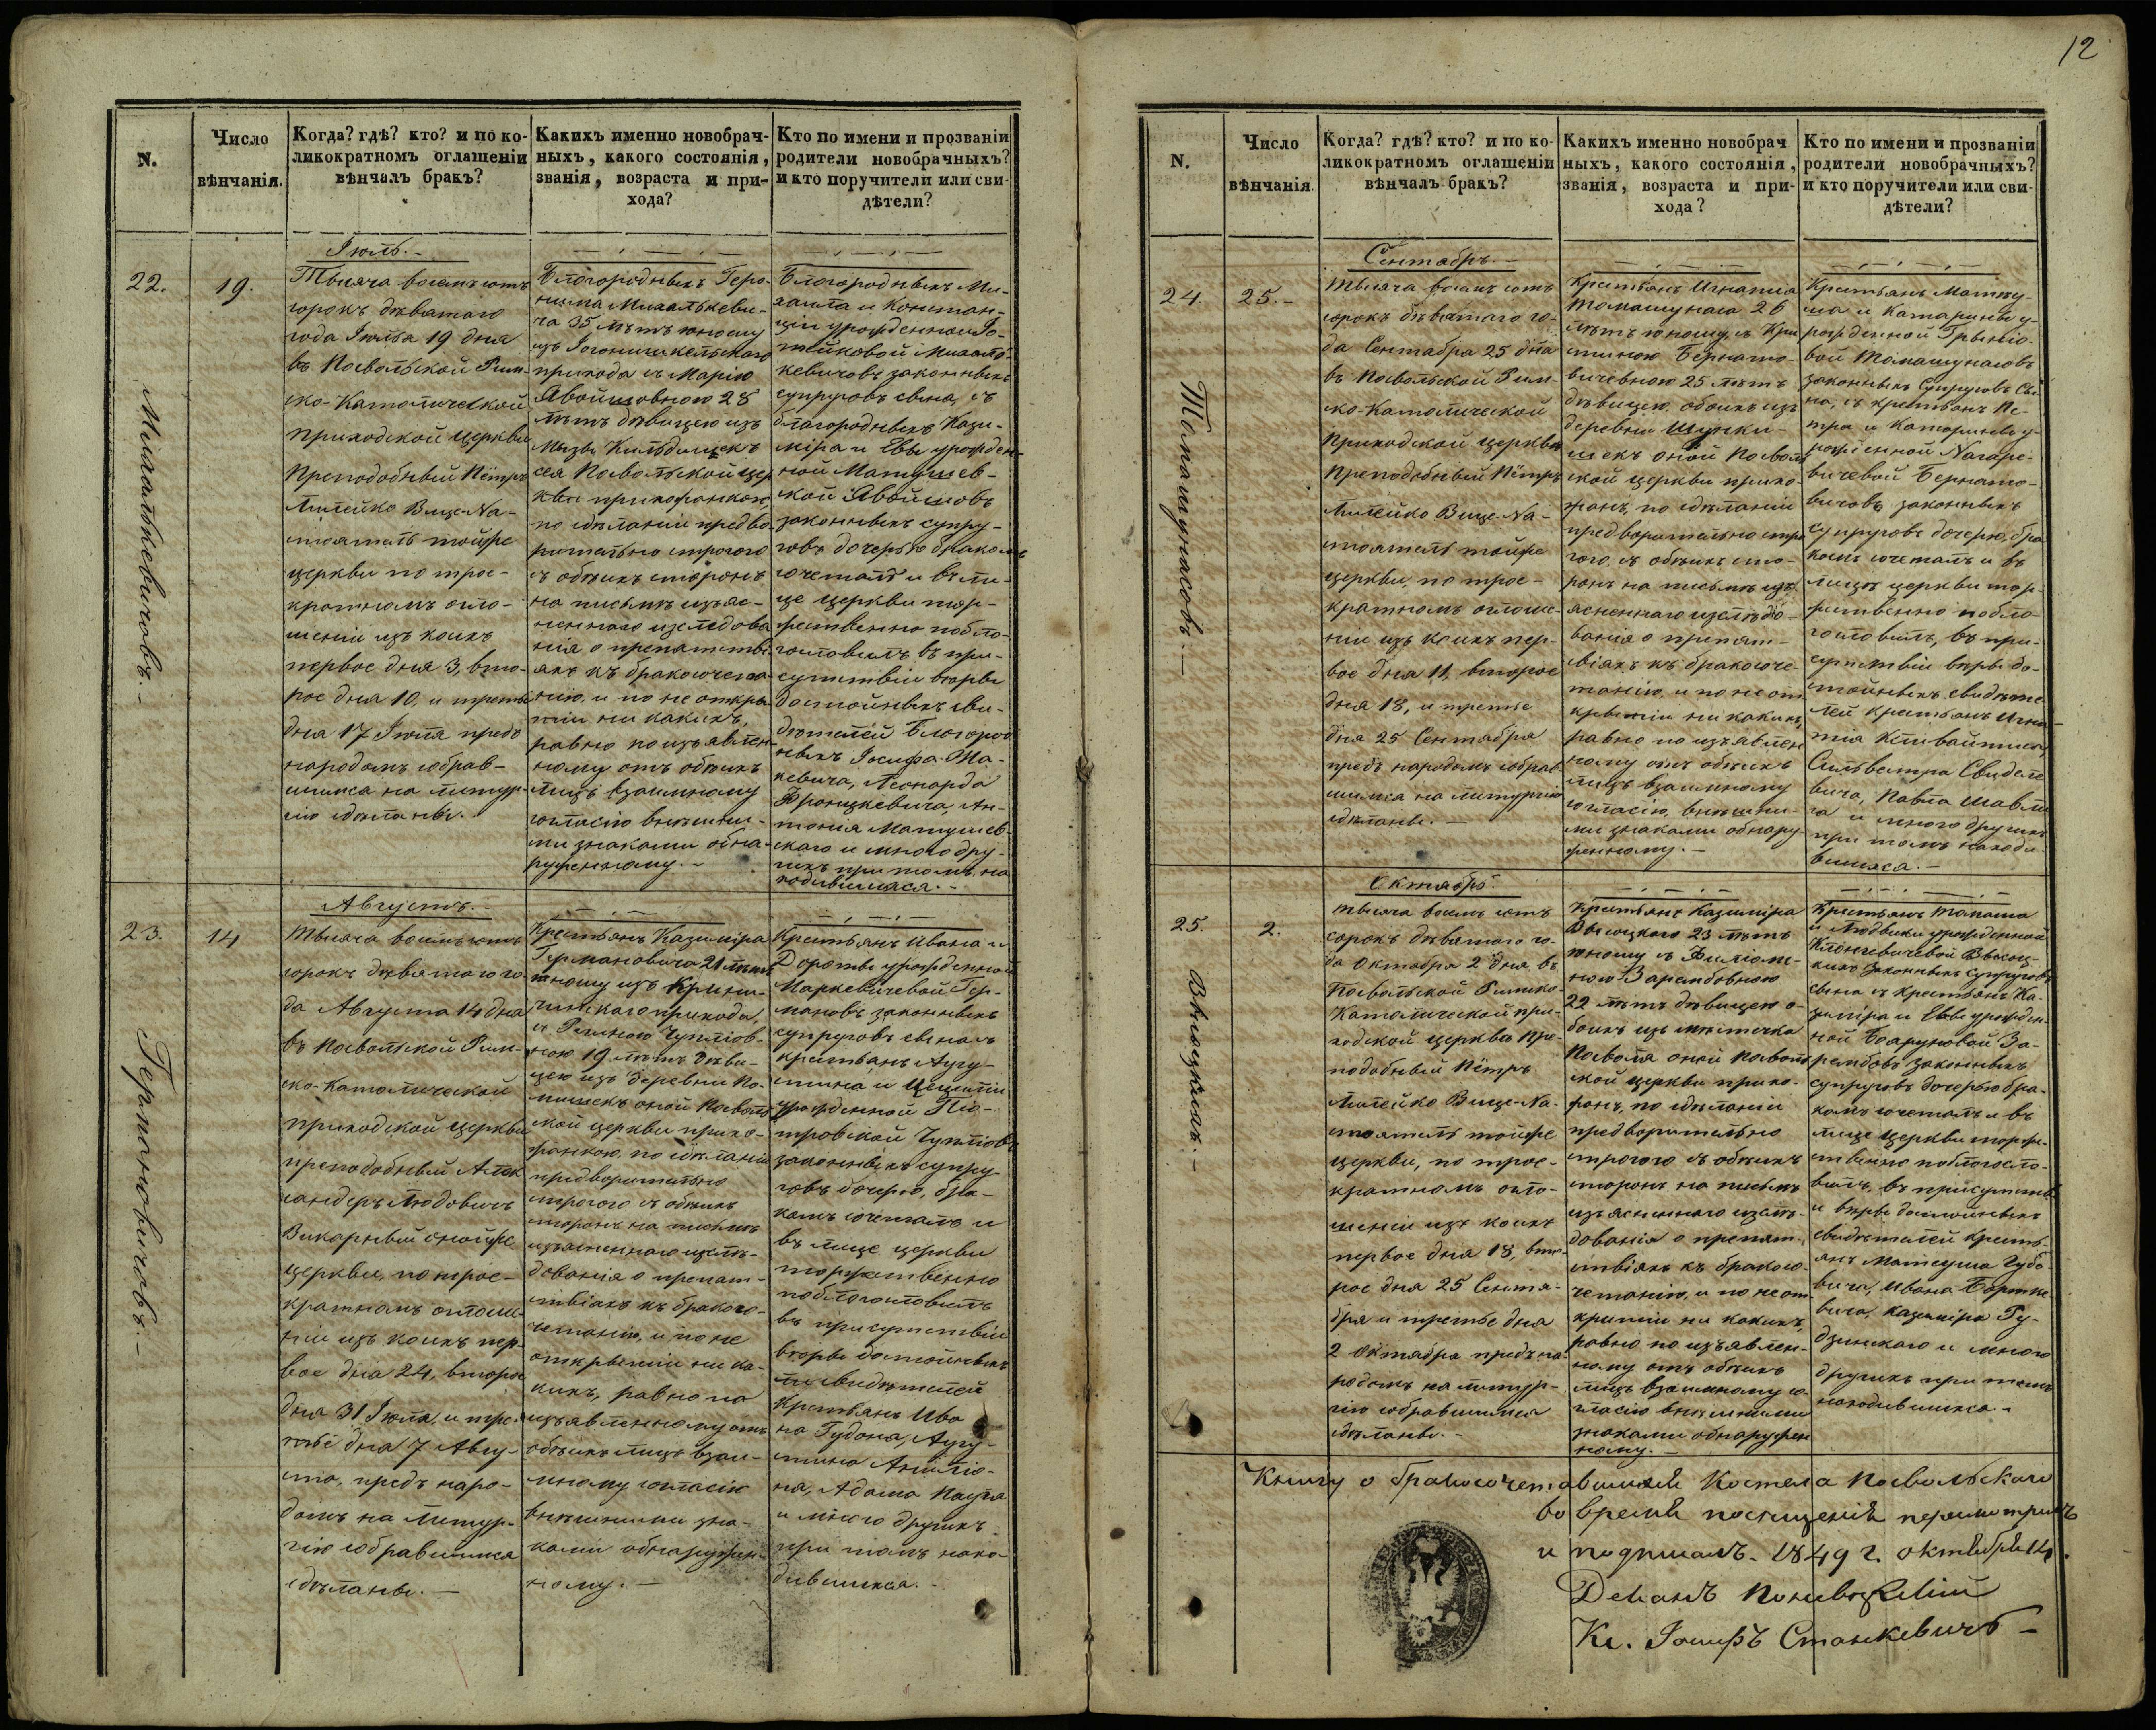 12
N.
Число
вѣнчанія.
Когда? гдѣ? кто? и по ко-
ликократномъ оглашеніи
вѣнчалъ бракъ?
Какихъ именно новобрач-
ныхъ, какого состоянія,
званія, возраста и при-
хода?
Кто по имени и прозванію
родители новобрачныхъ?
и кто поручители или сви-
дѣтели?
22.
Михалькевичовъ. -
19.
Іюль. -
Тысяча восемь сотъ
сорокъ девятаго
года Іюля 19 дня
въ Посвольской Рим-
ско-Католической
приходской церкви
Преподобный Пётръ
Милейко Вице-На-
стоятель тойже
церкви по трое-
кратномъ огло-
шеніи изъ коихъ
первое дня 3, вто-
рое дня 10, и третье
дня 17 Іюля предъ
народомъ собрав-
шимся на литур-
гію сдѣланы. -
Благородныхъ Геро-
нима Михалькеви-
ча 35 лѣтъ юношу
изъ
прихода съ Маріею
Явойшовною 28
лѣтъ дѣвицею изъ
Мызы
сея Посвольской цер
кви прихожанкою,
по сдѣланіи предва-
рительно строгого
съ обѣихъ сторонъ
на письмѣ изъяс-
неннаго изслѣдова
нія о препятстві-
яхъ къ бракосочета-
нію, и по не откры
тіи ни какихъ,
равно по изъявлен-
ному отъ обѣихъ
лицъ взаимному
согласію внѣшни-
ми знаками обна-
руженному. -
Благородныхъ Ми-
хаила и Констан-
ціи урожденной
Михаль-
кевичовъ законныхъ
супруговъ сына, съ
благородныхъ Кази-
міра и Евы урожден-
ной Матушев-
ской Явойшовъ
законныхъ супру-
говъ дочерью бракомъ
сочеталъ и въ ли-
це церкви тор-
жественно побла-
гословилъ въ при-
сутствіи вѣры
достойныхъ сви-
дѣтелей Благород
ныхъ Іосифа Ма-
кевича, Леонарда
Бронишкевича, Ан-
тонія Матушев-
скаго и много дру-
гихъ при томъ на
ходившихся. -
23.
Германовичовъ. -
14
Августъ. -
Тысяча восемь сотъ
сорокъ девятаго го-
да Августа 14 дня
въ Посвольской Рим-
ско-Католической
приходской церкви
преподобный Алек
сандеръ Людовичъ
Викарный онойже
церкви, по трое-
кратномъ оглаше-
ніи изъ коихъ пер-
вое дня 24, второе
дня 31 Іюля, и тре-
тье дня 7 Авгу-
ста, предъ наро-
домъ на Литур-
гію собравшимся
сдѣланы. -
Крестьянъ Казиміра
Германовича 21 лѣтъ
юношу изъ Крини-
чинскаго прихода,
съ
ною 19 лѣтъ дѣви-
цею изъ деревни По-
оной Посволь
ской церкви прихо-
жанкою, по сдѣланіи
предварительно
строгого съ обѣихъ
сторонъ на письмѣ
изъясненнаго изслѣ-
дованія о препят-
ствіяхъ къ бракосо-
четанію, и по не
открытіи ни ка-
кихъ, равно по
изъявленному отъ
обѣихъ лицъ взаи-
мному согласію
внѣшними зна-
ками обнаружен-
ному. -
Крестьянъ Ивана и
Доротеи урожденной
Маркевичевой Гер-
мановъ законныхъ
супруговъ сына съ
крестьянъ Авгу-
стина и Цециліи
урожденной Піо-
тровской
законныхъ супру-
говъ дочерью, бра-
комъ сочеталъ и
въ лице церкви
торжественно
поблагословилъ
въ присутствіи
вѣры достойныхъ
свидѣтелей
Крестьянъ Ива
на Гудона, Авгу-
стина
на, Адама
и много другихъ
при томъ нахо-
дившихся. -
N.
Число
вѣнчанія.
Когда? гдѣ? кто? и по ко-
ликократномъ оглашеніи
вѣнчалъ бракъ?
Какихъ именно новобрач
ныхъ, какого состоянія,
званія, возраста и при-
хода?
Кто по имени и прозваніи
родители новобрачныхъ?
и кто поручители или сви-
дѣтели?
24.
Томашунасовъ. -
25. -
Сентябрь. -
Тысяча восемь сотъ
сорокъ девятаго го-
да Сентября 25 дня
въ Посвольской Рим-
ско-Католической
приходской церкви
Преподобный Пётръ
Милейко Вице-На-
стоятель тойже
церкви, по трое-
кратномъ оглаше-
ніи изъ коихъ пер-
вое дня 11, второе
дня 18, и третье
дня 25 Сентября
предъ народомъ собрав
шимся на литургію
сдѣланы. -
Крестьянъ Игнатія
Томашунаса 26
лѣтъ юношу, съ Кри
стиною Бернато-
вичевною 25 лѣтъ
дѣвицею, обоихъ изъ
деревни Шунки-
шекъ оной Посволь
ской церкви прихо-
жанъ, по сдѣланіи
предварительно стро
гого съ обѣихъ сто-
ронъ на письмѣ изъ
ясненнаго изслѣдо-
ванія о препят-
ствіяхъ къ бракосоче-
танію, и по не от-
крытіи ни какихъ,
равно по изъявлен
ному отъ обѣихъ
лицъ взаимному
согласію, внѣшни-
ми знаками обнару-
женному. -
Крестьянъ Матеу-
ша и Катарины у-
рожденной
вой Томашунасовъ
законныхъ Супруговъ Сы-
на, съ крестьянъ Пе-
тра и Катарины у-
рожденной
вичевой Бернато-
вичовъ законныхъ
супруговъ дочерью, бра
комъ сочеталъ и въ
лицѣ церкви тор-
жественно побла-
гословилъ, въ при-
сутствіи вѣры до-
стойныхъ свидѣте
лей крестьянъ Игна-
тія
Сильвестра
вича, Павла
и много другихъ
при томъ находи-
вшихся. -
25.
Высоцкихъ. -
2.
Октябрь.
Тысяча восемь сотъ
сорокъ девятаго го-
да Октября 2 дня въ
Посвольской Римско-
Католической при-
ходской церкви Пре-
подобный Пётръ
Милейко Вице-На-
стоятель тойже
церкви, по трое-
кратномъ огло-
шеніи изъ коихъ
первое дня 18, вто-
рое дня 25 Сентя-
бря и третье дня
2 Октября предъ на-
родомъ на литур-
гію собравшимся
сдѣланы. -
Крестьянъ Казиміра
Высоцкаго 23 лѣтъ
юношу съ
ною Зарембовною
22 лѣтъ дѣвицею о-
боихъ изъ мѣстечка
Посволя оной Посволь
ской церкви прихо-
жанъ, по сдѣланіи
предварительно
строгого съ обѣихъ
сторонъ на письмѣ
изъясненнаго изслѣ-
дованія о препят-
ствіяхъ къ бракосо-
четанію, и по не от-
крытіи ни какихъ,
равно по изъявлен-
ному отъ обѣихъ
лицъ взаимному со-
гласію внѣшними
знаками обнаружен
ному. -
Крестьянъ Томаша
и Людвики урожденной
Высоц-
кихъ законныхъ супруговъ
сына съ крестьянъ Ка-
зиміра и Евы урожден-
ной За-
рембовъ законныхъ
супруговъ дочерью бра-
комъ сочеталъ и въ
лице церкви торже-
ственно поблагосло-
вилъ, въ присутстві
и вѣры достойныхъ
свидѣтелей кресть-
янъ Матеуша
вича, Ивана
вича, Казиміра Гу-
дзинскаго и много
другихъ при томъ
находившихся. -
Книгу о бракосочетавшихся Костела Посвольскаго
во время посѣщенія пересмотрилъ
и подписалъ. 1849 г. октября 14.
Деканъ Поневѣжскій
Кс. Іосифъ Станкевичъ -